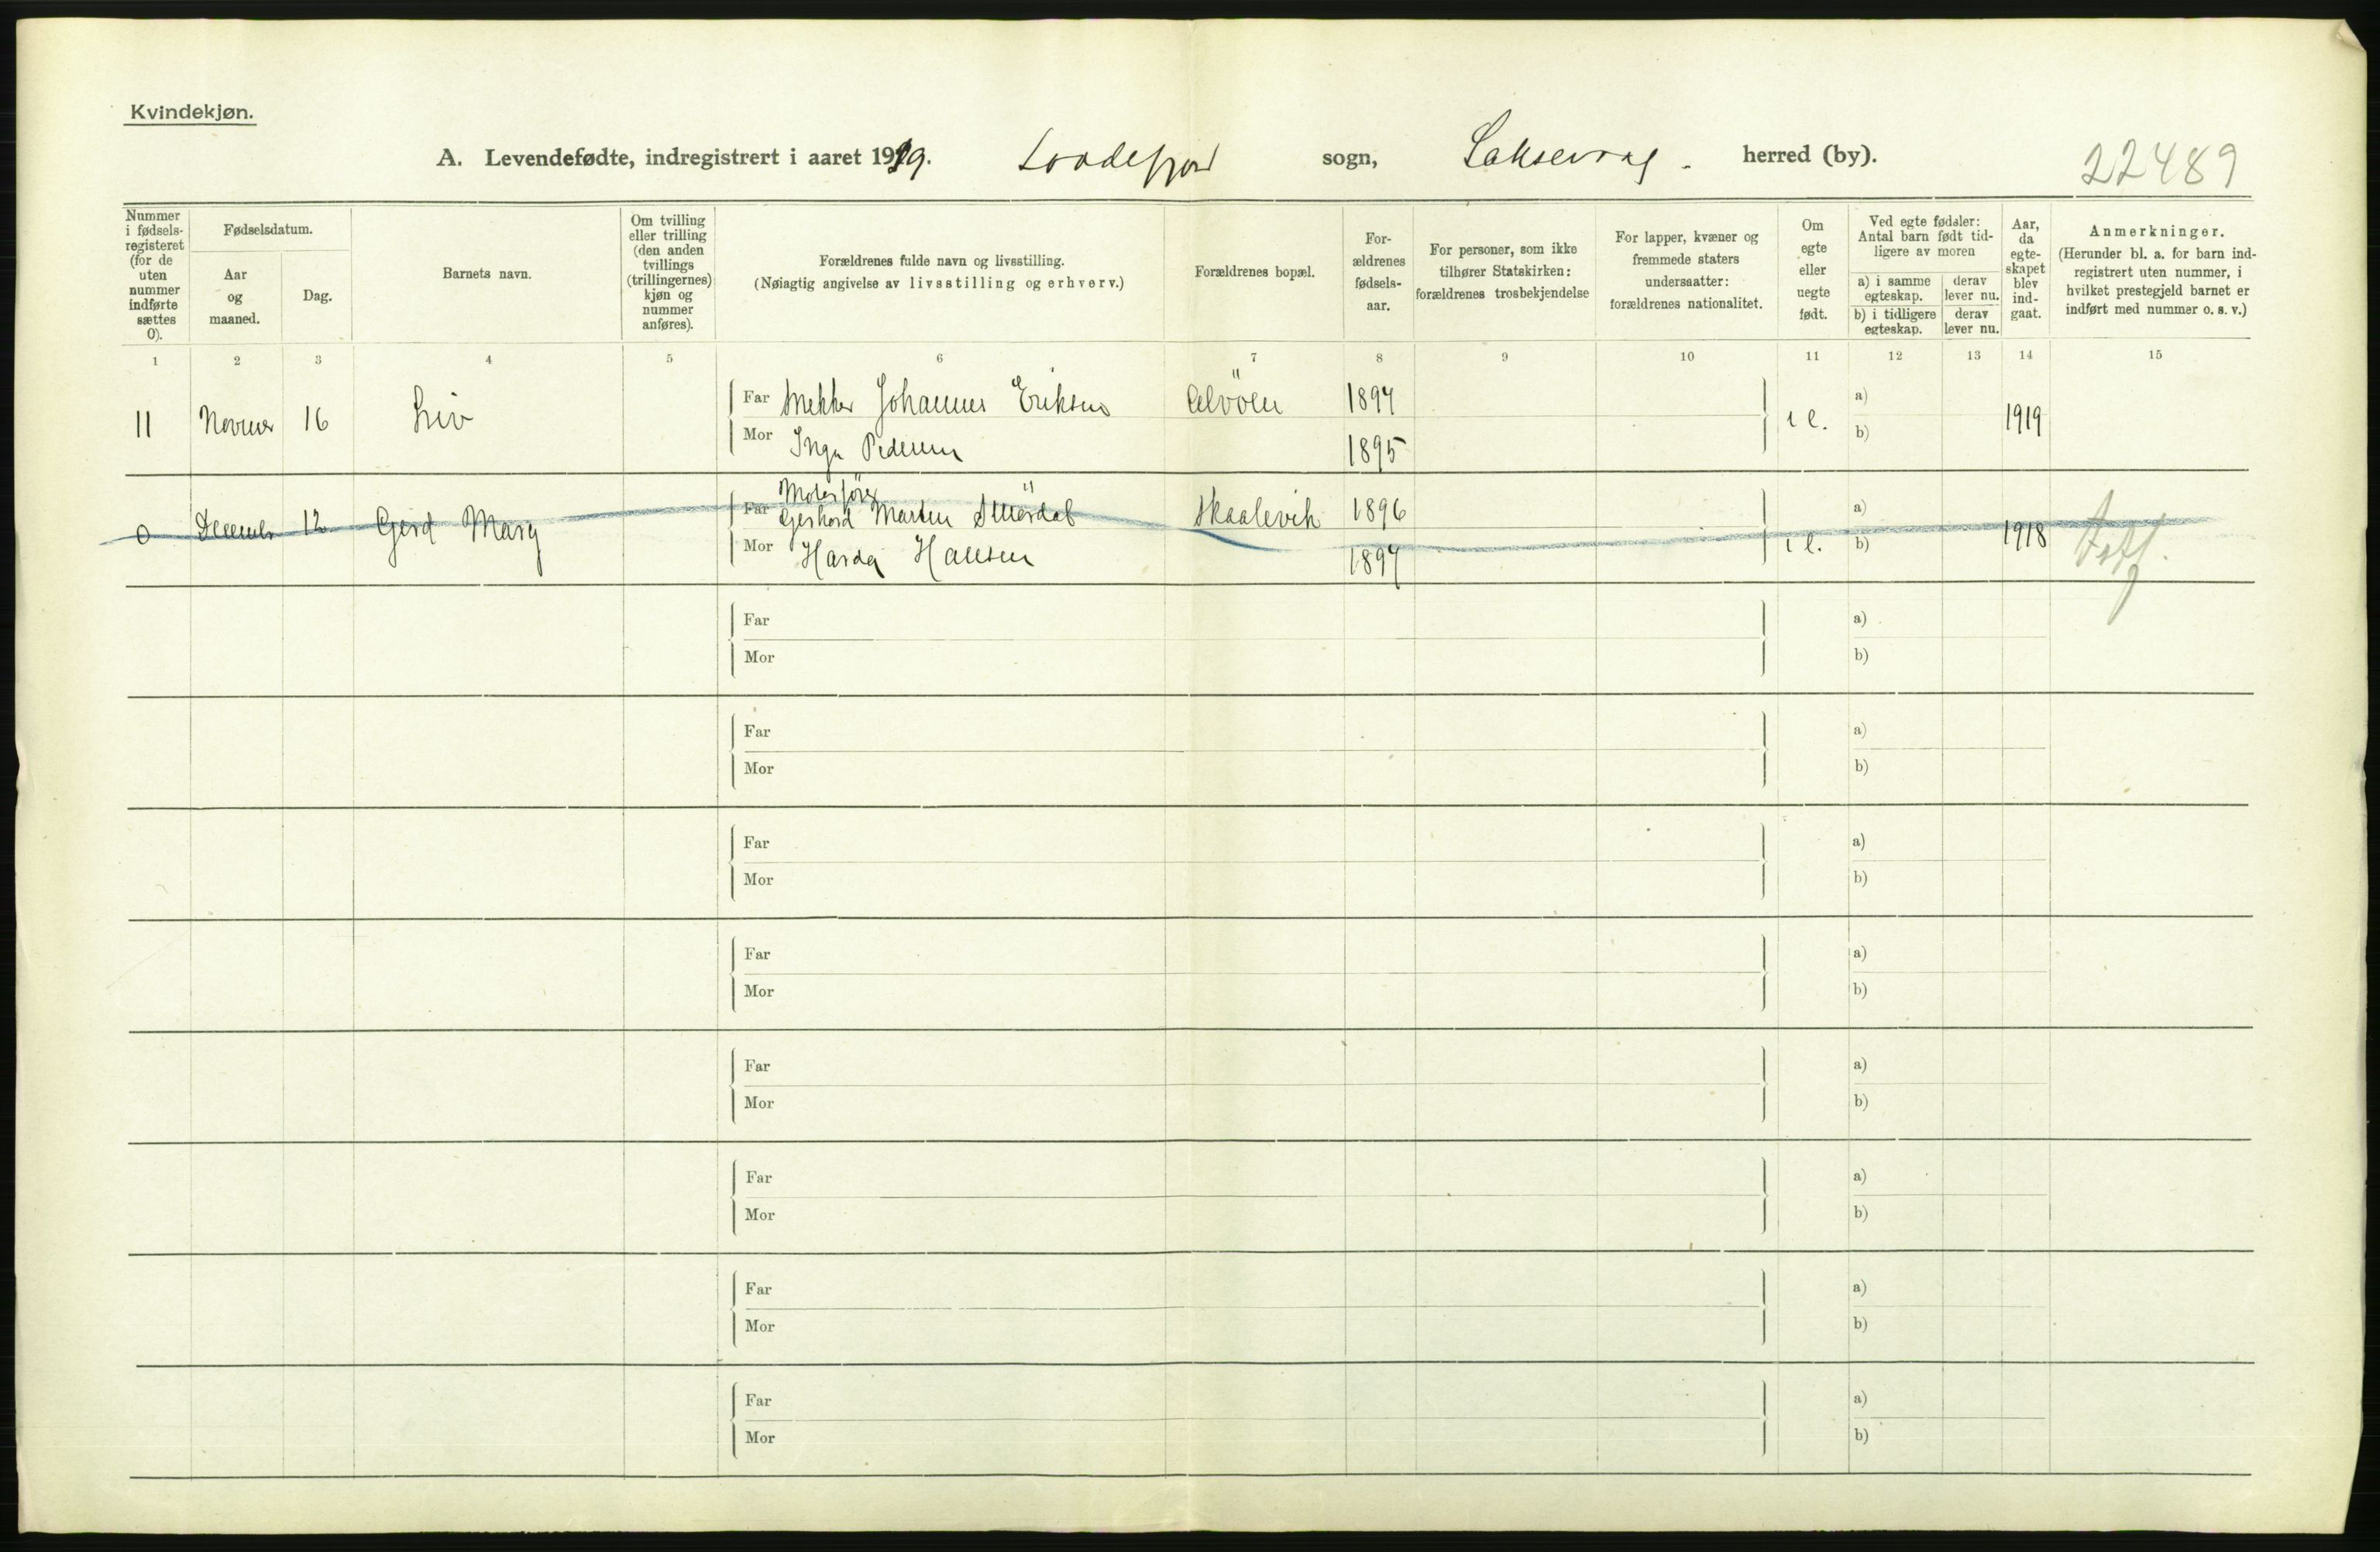 Kvindekjøn.
A. Levendefødte, indregistrert i aaret 1919. Loddefjord sogn, Laksevaag. herred (by). 22489
Nummer i fødsels-registeret (for de uten nummer indførte sættes 0).
Fødselsdatum.
Aar og maaned.
Dag.
Barnets navn.
Om tvilling eller trilling (den anden tvillings (trillingernes) kjøn og nummer anføres).
Forældrenes fulde navn og livsstilling.
(Nøiagtig angivelse av livsstilling og erhverv.)
Forældrenes bopæl.
For-ældrenes fødsels-aar.
For personer, som ikke tilhører Statskirken: forældrenes trosbekjendelse
For lapper, kvæner og fremmede staters undersaatter: forældrenes nationalitet.
Om egte eller uegte født.
Ved egte fødsler: Antal barn født tid-ligere av moren
a) i samme egteskap.
derav lever nu.
b) i tidligere egteskap.
derav lever nu.
Aar, da egte-skapet blev ind-gaat.
Anmerkninger.
(Herunder bl. a. for barn ind-registrert uten nummer, i hvilket prestegjeld barnet er indført med nummer o. s. v.)
1 2 3 4 5 6 7 8 9 10 11 12 13 14 15
11 16 Liv Far Johannes Eriksen Alvöen 1894 i e. a) 1919
Mor Inga Pedersen 1895 b)
0 December 12 Gerd Mary Motorförer
Far Gerhard Martin Skaalevik 1896 i e. a) 1918
Mor Harda Hansen 1894 b)
Far a)
Mor b)
Far a)
Mor b)
Far a)
Mor b)
Far a)
Mor b)
Far a)
Mor b)
Far a)
Mor b)
Far a)
Mor b)
Far a)
Mor b)